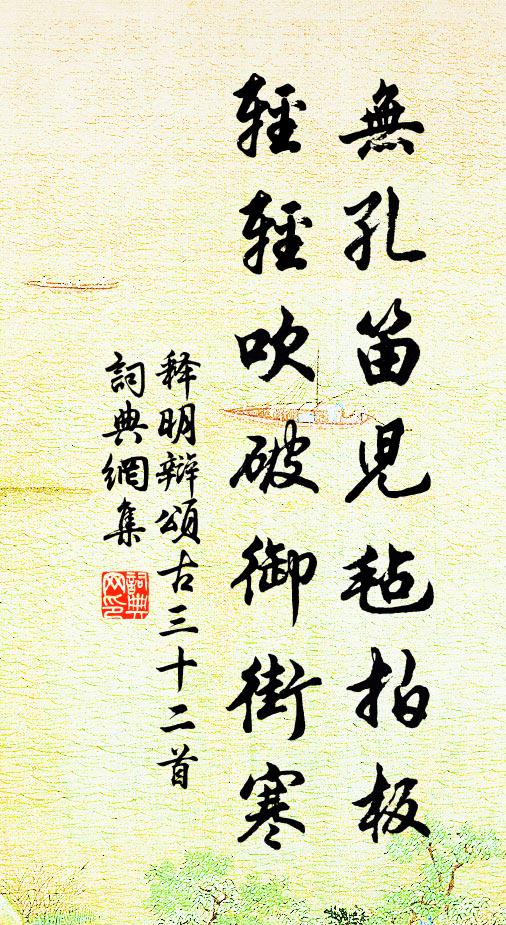 無孔笛児毡拍板
輕輕吹破御街寒
释明辯頌古三十二首
詞典網集
詞典网印